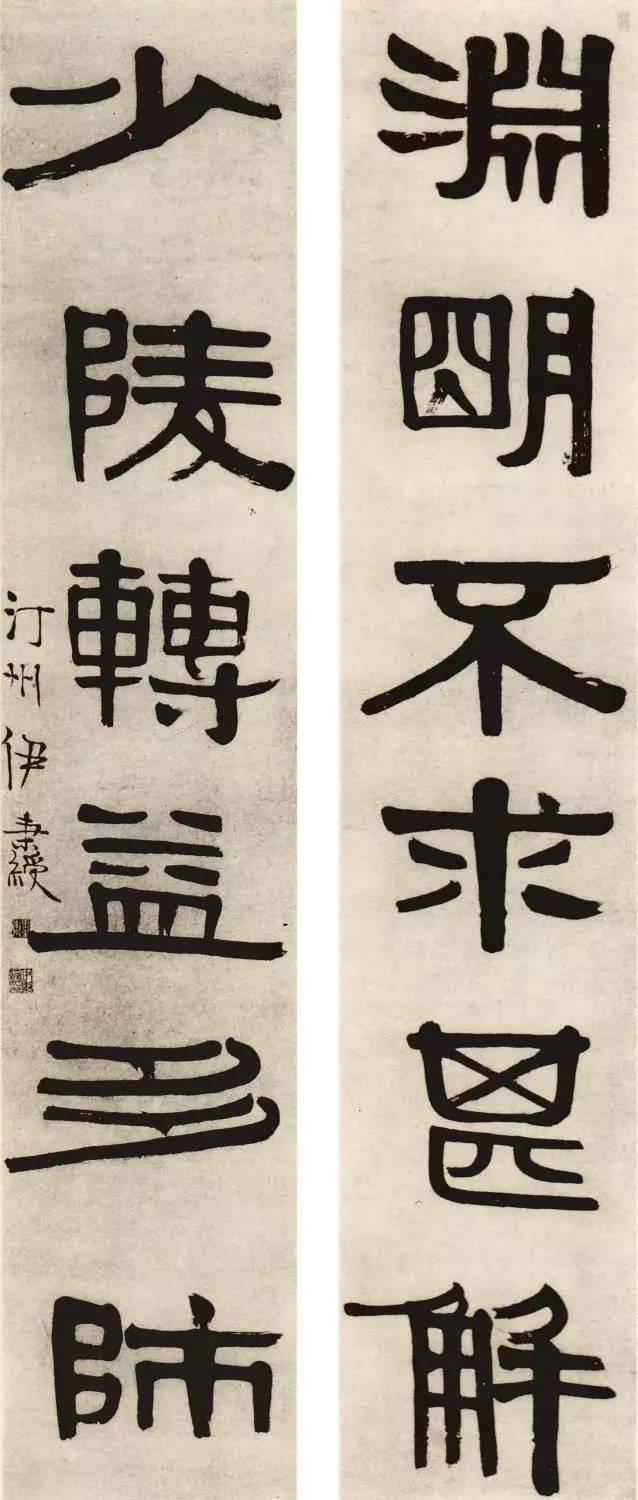 淵明不求甚解
少陵轉益多師
汀州伊秉綬